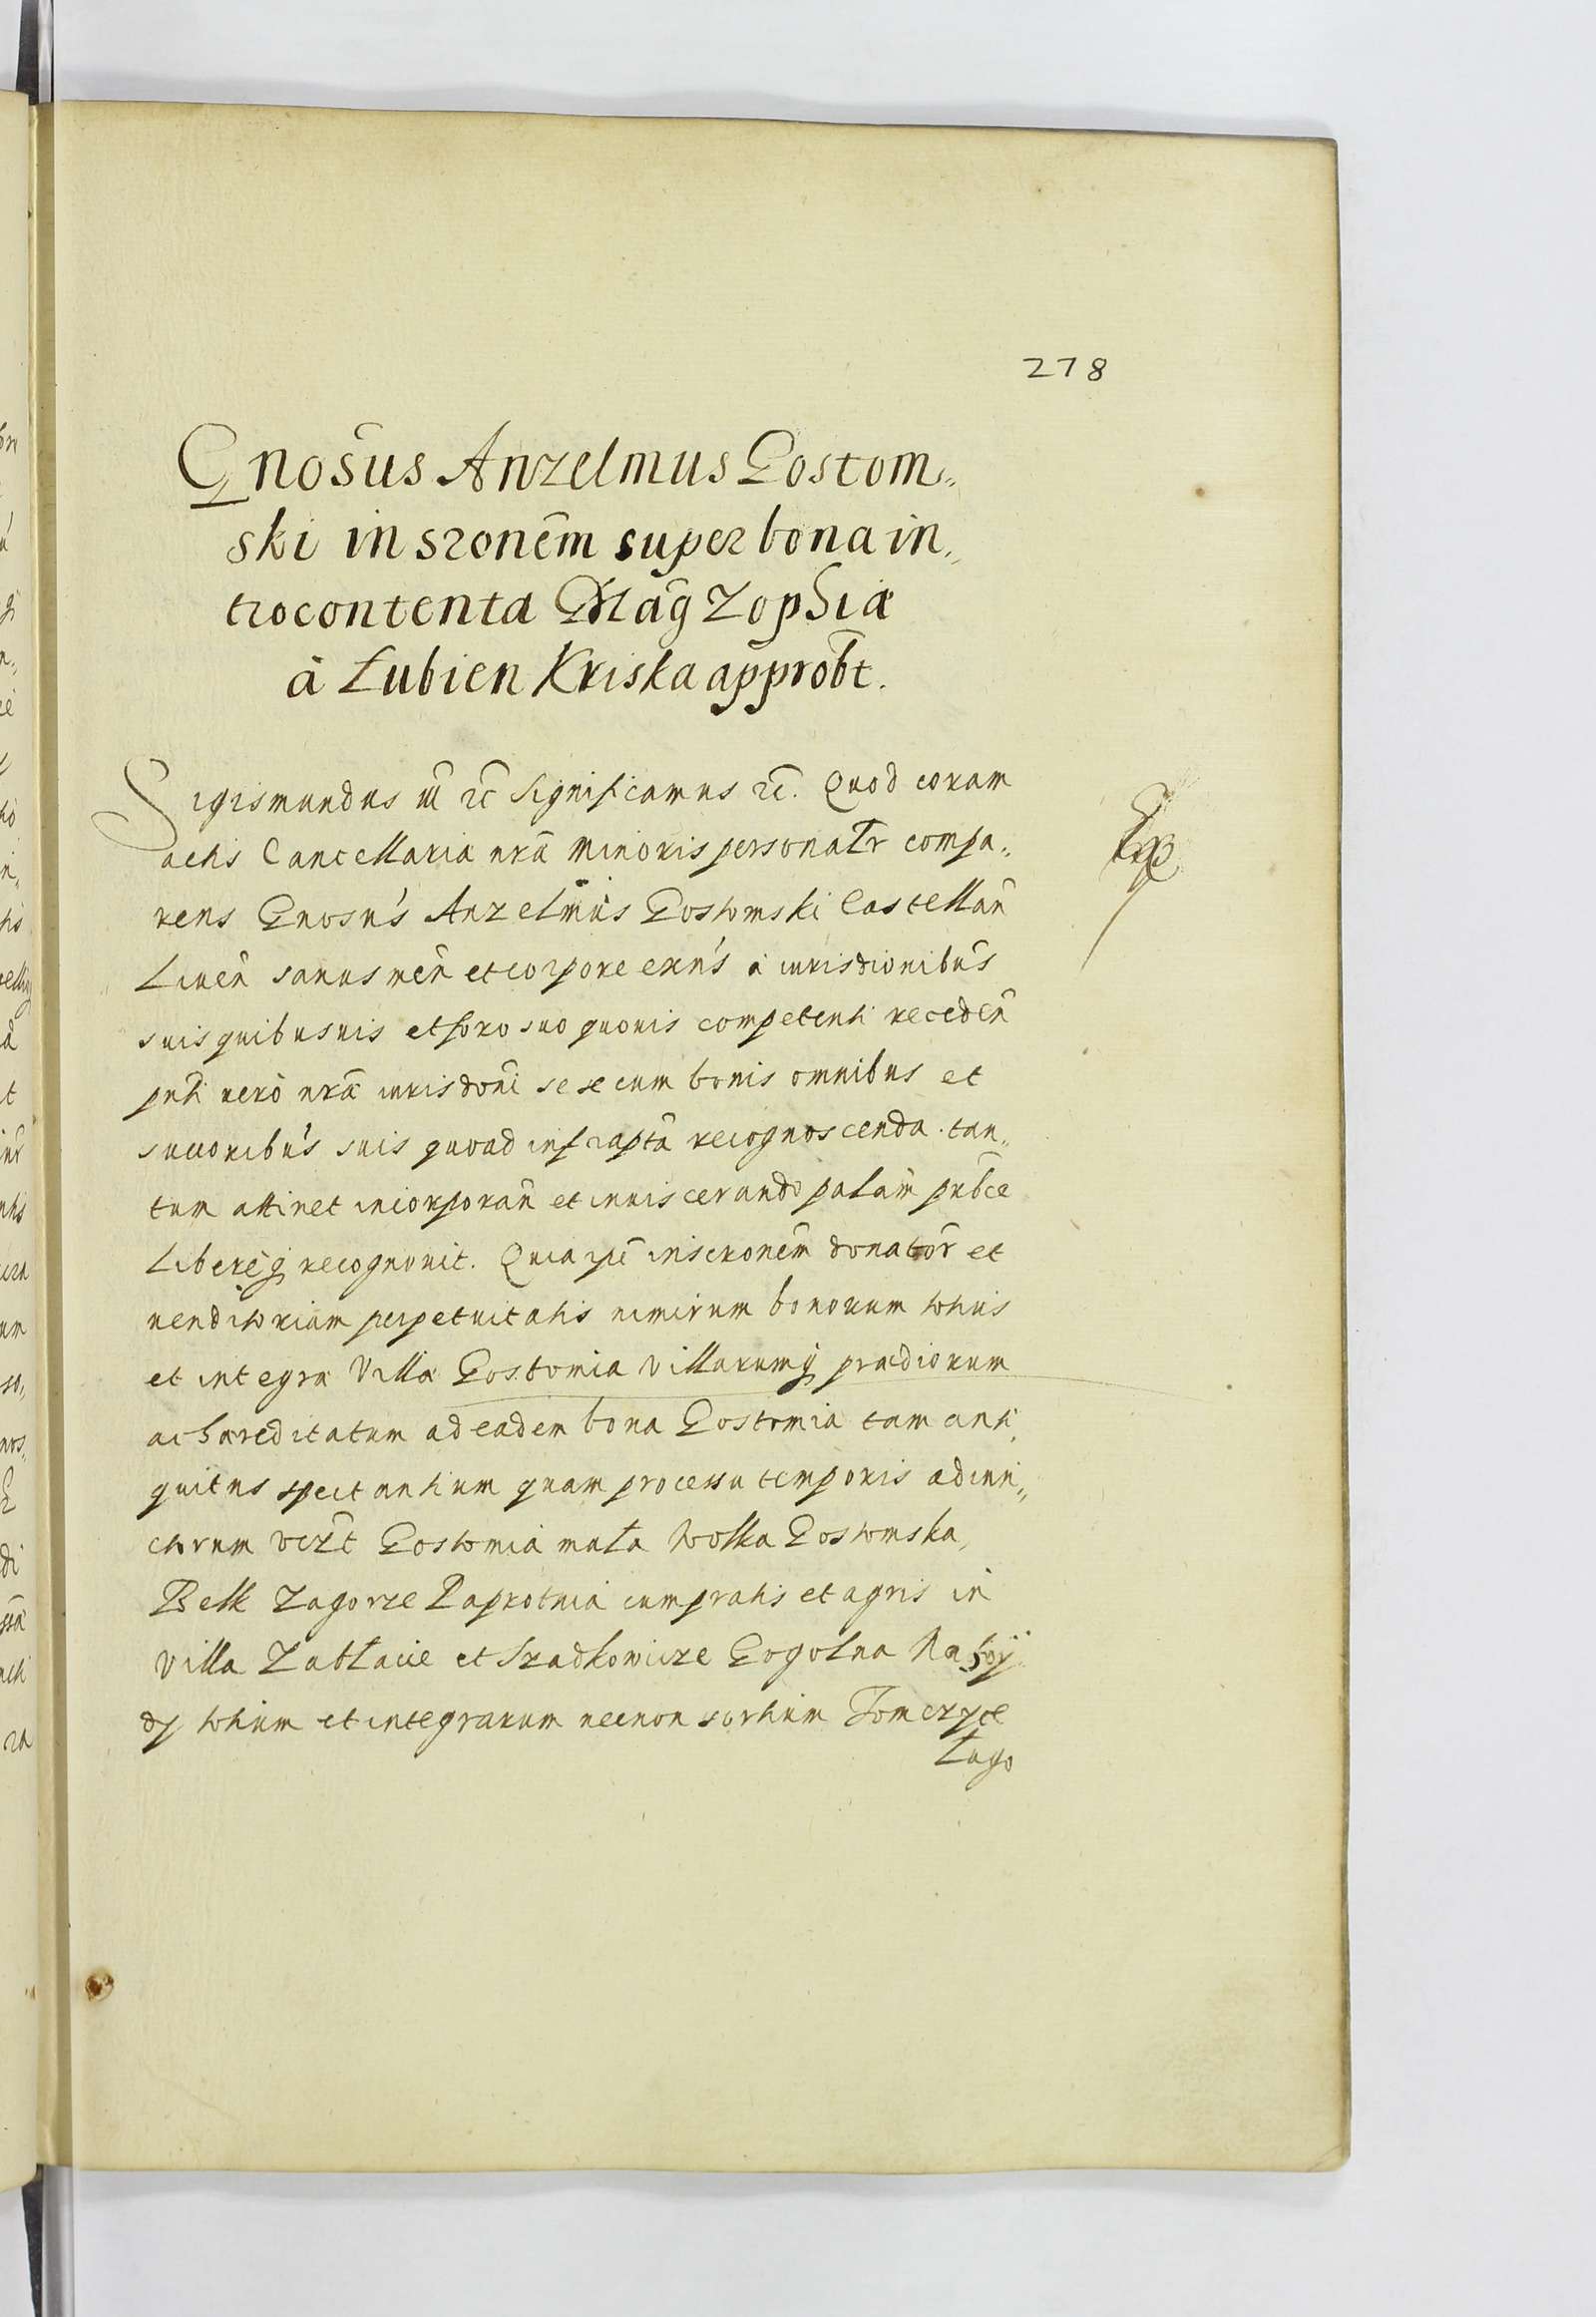 278
Gnosus Anzelmus Gostom„
ski inscronem super bona in„
trocontenta Mag Zophiæ
à Łubien Kriska approbt.
Sigismundus III etc Significamus etc. Quod coram
actis Cancellariæ nræ minoris personalr compa„
rens Gnosus Anzelmus Gostomski Castellan
Liuen sanus men et corpore exns à iurisdionibus
suis quibusuis et foro suo quouis competenti receden
pnti uerò nræ iurisdoni se se cum bonis omnibus et
succoribus suis quoad infrapta recognoscenda tan„
tum attinet incorporan et inuiscerando palàm publce
Liberèq recognouit. Quia ipe inscronem donator et
uenditoriam perpetuitatis nimirum bonorum totius
et integræ Villæ Gostomia Villarumq prædiorum
ac hæreditatum ad eadem bona Gostomia tam anti„
quitus spectantium quam processu temporis adiun„
ctorum vizt Gostomia mała Wolka Gostomska,
Belk Zagorze Paprotnia cum pratis et agris in
Villa Zabłacie et Szadkowicze Gogolna
dy totium et integrarum necnon sortium Tomczyce
Łago